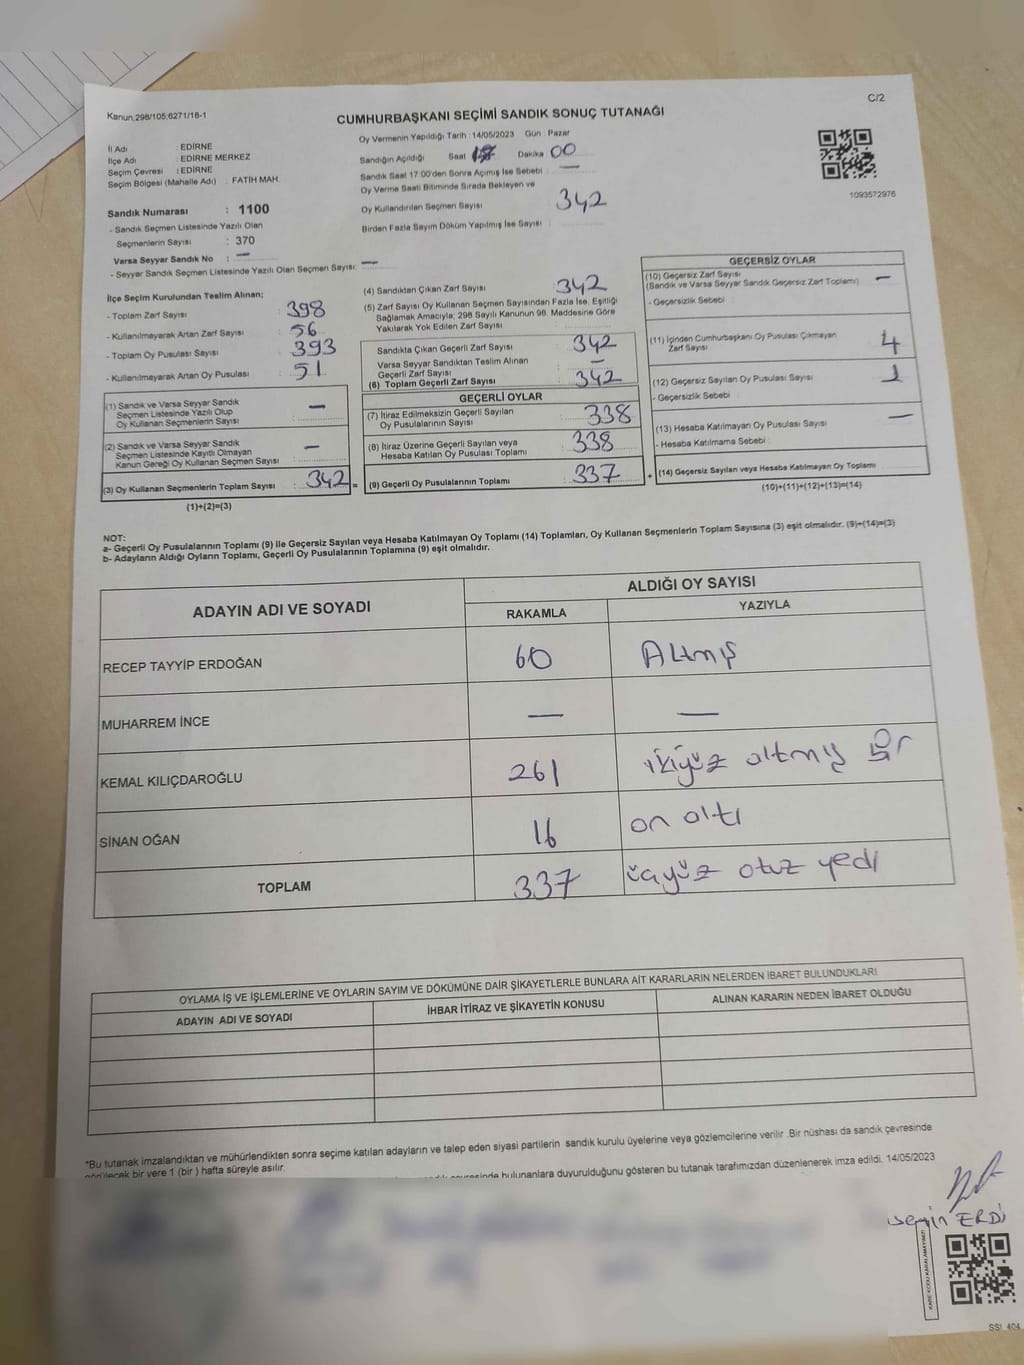 C/2
Kanun:298/105;6271/16-1
CUMHURBAŞKANI SEÇİMİ SANDIK SONUÇ TUTANAĞI
İl Adı : EDİRNE
İlçe Adı : EDİRNE MERKEZ
Seçim Çevresi : EDİRNE
Seçim Bölgesi (Mahalle Adı) : FATİH MAH.
Sandık Numarası : 1100
- Sandık Seçmen Listesinde Yazılı Olan
Seçmenlerin Sayısı : 370
Varsa Seyyar Sandık No : —
- Seyyar Sandık Seçmen Listesinde Yazılı Olan Seçmen Sayısı: —
Oy Vermenin Yapıldığı Tarih : 14/05/2023 Gün : Pazar
Sandığın Açıldığı Saat Dakika 00
Sandık Saat 17:00'den Sonra Açımış İse Sebebi : —
Oy Verme Saati Bitiminde Sırada Bekleyen ve
Oy Kullandırılan Seçmen Sayısı : 342
Birden Fazla Sayım Döküm Yapılmış İse Sayısı :
1093572976
İlçe Seçim Kurulundan Teslim Alınan;
- Toplam Zarf Sayısı : 398
- Kullanılmayarak Artan Zarf Sayısı : 56
- Toplam Oy Pusulası Sayısı : 393
- Kullanılmayarak Artan Oy Pusulası : 51
(1) Sandık ve Varsa Seyyar Sandık
Seçmen Listesinde Yazılı Olup
Oy Kullanan Seçmenlerin Sayısı : —
(2) Sandık ve Varsa Seyyar Sandık
Seçmen Listesinde Kayıtlı Olmayan
Kanun Gereği Oy Kullanan Seçmen Sayısı : —
(3) Oy Kullanan Seçmenlerin Toplam Sayısı : 342 =
(1)+(2)=(3)
(4) Sandıktan Çıkan Zarf Sayısı : 342
(5) Zarf Sayısı Oy Kullanan Seçmen Sayısından Fazla İse, Eşitliği
Sağlamak Amacıyla; 298 Sayılı Kanunun 98. Maddesine Göre
Yakılarak Yok Edilen Zarf Sayısı :
Sandıkta Çıkan Geçerli Zarf Sayısı : 342
Varsa Seyyar Sandıktan Teslim Alınan
Geçerli Zarf Sayısı : —
(6) Toplam Geçerli Zarf Sayısı : 342
GEÇERLİ OYLAR
(7) İtiraz Edilmeksizin Geçerli Sayılan
Oy Pusulasının Sayısı : 338
(8) İtiraz Üzerine Geçerli Sayılan veya
Hesaba Katılan Oy Pusulası Toplamı : 338
(9) Geçerli Oy Pusulalarının Toplamı : 337 +
GEÇERSİZ OYLAR
(10) Geçersiz Zarf Sayısı
(Sandık ve Varsa Seyyar Sandık Geçersiz Zarf Toplamı) —
- Geçersizlik Sebebi :
(11) İçinden Cumhurbaşkanı Oy Pusulası Çıkmayan
Zarf Sayısı : 4
(12) Geçersiz Sayılan Oy Pusulası Sayısı : 1
- Geçersizlik Sebebi :
(13) Hesaba Katılmayan Oy Pusulası Sayısı : —
- Hesaba Katılmama Sebebi :
(14) Geçersiz Sayılan veya Hesaba Katılmayan Oy Toplamı
(10)+(11)+(12)+(13)=(14)
NOT:
a- Geçerli Oy Pusulalarının Toplamı (9) ile Geçersiz Sayılan veya Hesaba Katılmayan Oy Toplamı (14) Toplamları, Oy Kullanan Seçmenlerin Toplam Sayısına (3) eşit olmalıdır. (9)+(14)=(3)
b- Adayların Aldığı Oyların Toplamı, Geçerli Oy Pusulalarının Toplamına (9) eşit olmalıdır.
ADAYIN ADI VE SOYADI
ALDIĞI OY SAYISI
RAKAMLA YAZIYLA
RECEP TAYYİP ERDOĞAN 60 Altmış
MUHARREM İNCE — —
KEMAL KILIÇDAROĞLU 261 ikiyüz altmış bir
SİNAN OĞAN 16 on altı
TOPLAM 337 üçyüz otuz yedi
OYLAMA İŞ VE İŞLEMLERİNE VE OYLARIN SAYIM VE DÖKÜMÜNE DAİR ŞİKAYETLERLE BUNLARA AİT KARARLARIN NELERDEN İBARET BULUNDUKLARI
ADAYIN ADI VE SOYADI İHBAR İTİRAZ VE ŞİKAYETİN KONUSU ALINAN KARARIN NEDEN İBARET OLDUĞU
*Bu tutanak imzalandıktan ve mühürlendikten sonra seçime katılan adayların ve talep eden siyasi partilerin sandık kurulu üyelerine veya gözlemcilerine verilir .Bir nüshası da sandık çevresinde
görülecek bir yere 1 (bir ) hafta süreyle asılır.
bulunanlara duyurulduğunu gösteren bu tutanak tarafımızdan düzenlenerek imza edildi. 14/05/2023
ERDİ
KARE KODU KARALAMAYINIZ!